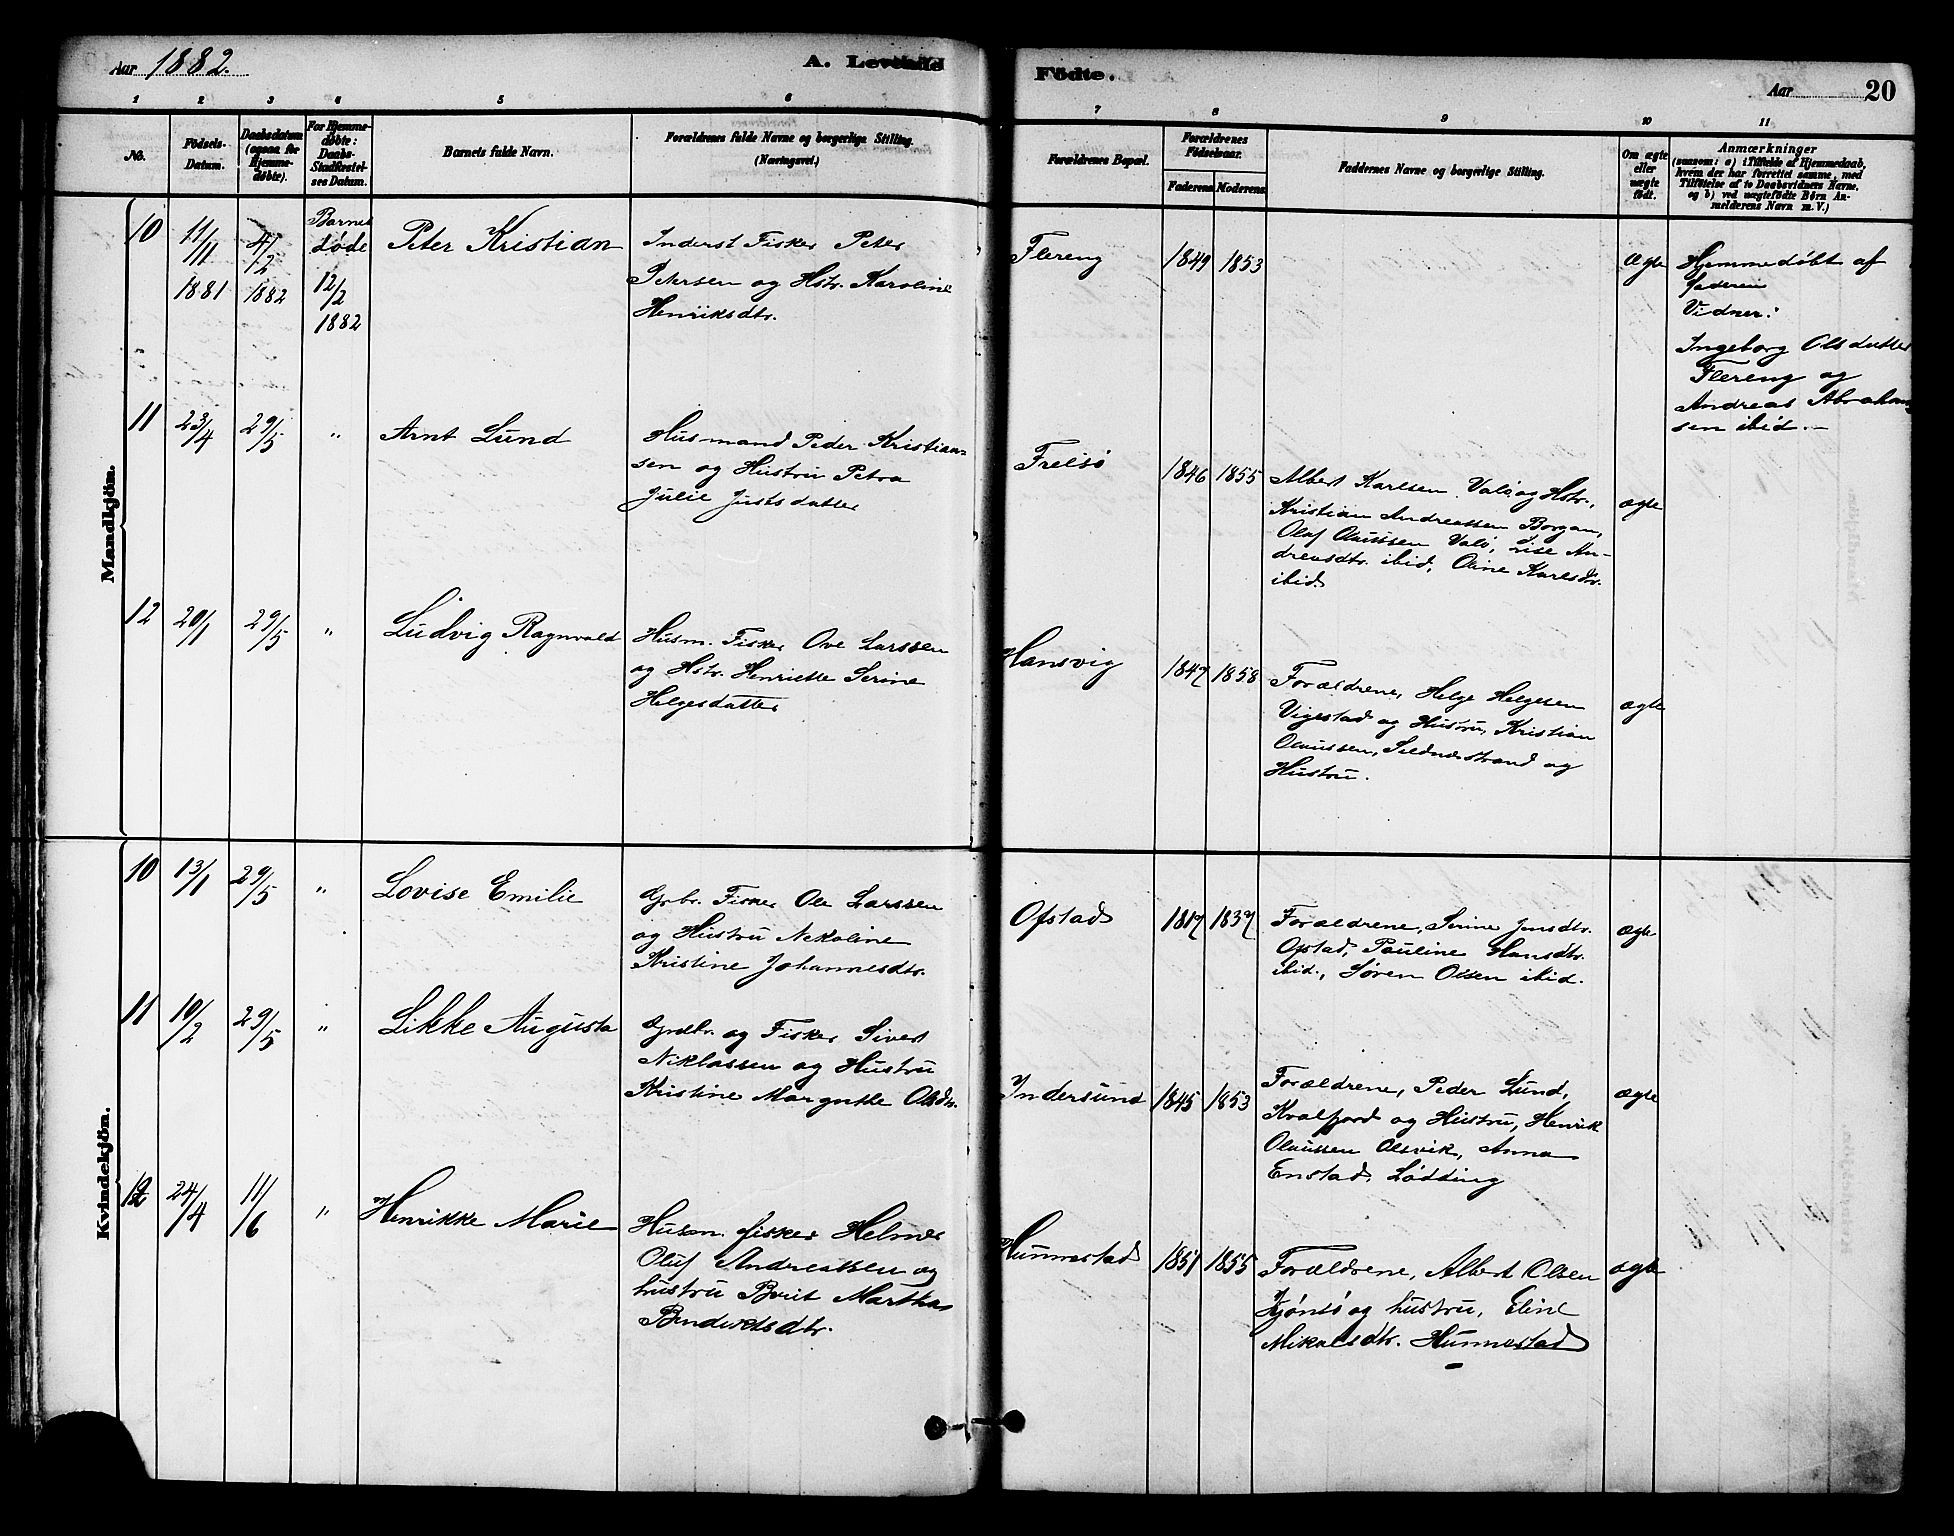 Aar 1882.
A. Levende
Födte.
Aar
20
1 2 3 4 5 6
7 8 9 10 11
No.
Födsels-
Datum.
Daabsdatum
(ogsaa for
Hjemme-
døbte).
For Hjemme-
døbte:
Daabs-
Stadfæstel-
ses Datum.
Barnets fulde Navn.
Forældrenes fulde Navne og borgerlige Stilling.
(Næringsvei.)
Forældrenes Bopæl.
Forældrenes
Födselsaar.
Faderens. Moderens.
Faddernes Navne og borgerlige Stilling.
Om ægte
eller
uægte
födt.
Anmærkninger
(saasom: a) i Tilfælde af Hjemmedaab,
hvem der har forrettet samme, med
Tilföielse af to Daabsvidners Navne,
og b) ved uægtefödte Börn An-
melderens Navn m. V.)
Mandkjön.
10
11/11
1881
4/12
1882
Barnet
døde
12/2
1882
Peter Kristian
Inderst Fisker Peter
Petersen og Hstr. Karoline
Henriksdtr.
Flereng
1849 1853
Ægte
Hjemmedøbt af
faderen
Vidner:
Ingeborg Olsdatter
Flereng og
Andreas Abraham-
sen ibid.-
11
23/4
29/5
"
Arnt Lund
Husmand Peder Kristian-
sen og Hustru Petra
Julie Justsdatter
Frelsø
1846 1855
Albert Karlsen Valø og Hstr.,
Kristian Andreassen Borgan,
Olaf Olaussen Valø, Lise An-
dreasdtr. ibid, Oline Karlsdtr.
ibid
ægte
12
20/1
29/5
"
Ludvig Ragnvald
Husm. Fisker Ove Larssen
og Hstr. Henriette Serine
Helgesdatter
Hansvig
1847 1858
Forældrene, Helge Helgesen
Vigestad og Hustru, Kristian
Olaussen, Sildnæstrand og
Hustru.
ægte
Kvindekjön.
10
13/1
29/5
"
Lovise Emilie
Gbr. Fisker Ole Larssen
og Hustru Nekoline
Kristine Johannesdtr.
Ofstad
1817 1837
Forældrene, Serine Jensdtr.
Ofstad, Pauline Hansdtr.
ibid., Søren Olsen ibid.
ægte
11
10/2
29/5
"
Likke Augusta
Grdbr. og Fisker Sivert
Niklassen og Hustru
Kristine Margrethe Olsdtr.
Indersund
1845 1853
Forældrene, Peder Lund,
Kvalfjord og Hustru, Henrik
Olaussen Olsvik, Anna
Enstad, Lødding
ægte
12
24/4
11/6
"
Henrikke Marie
Husm. fisker Helmer
Oluf Andreassen og
hustru Berit Martha
Bendixtsdtr.
Hunnestad
1851 1855
Forældrene, Albert Olsen
Kjønsø og hustru, Eline
Mikalsdtr. Hunnestad
ægte